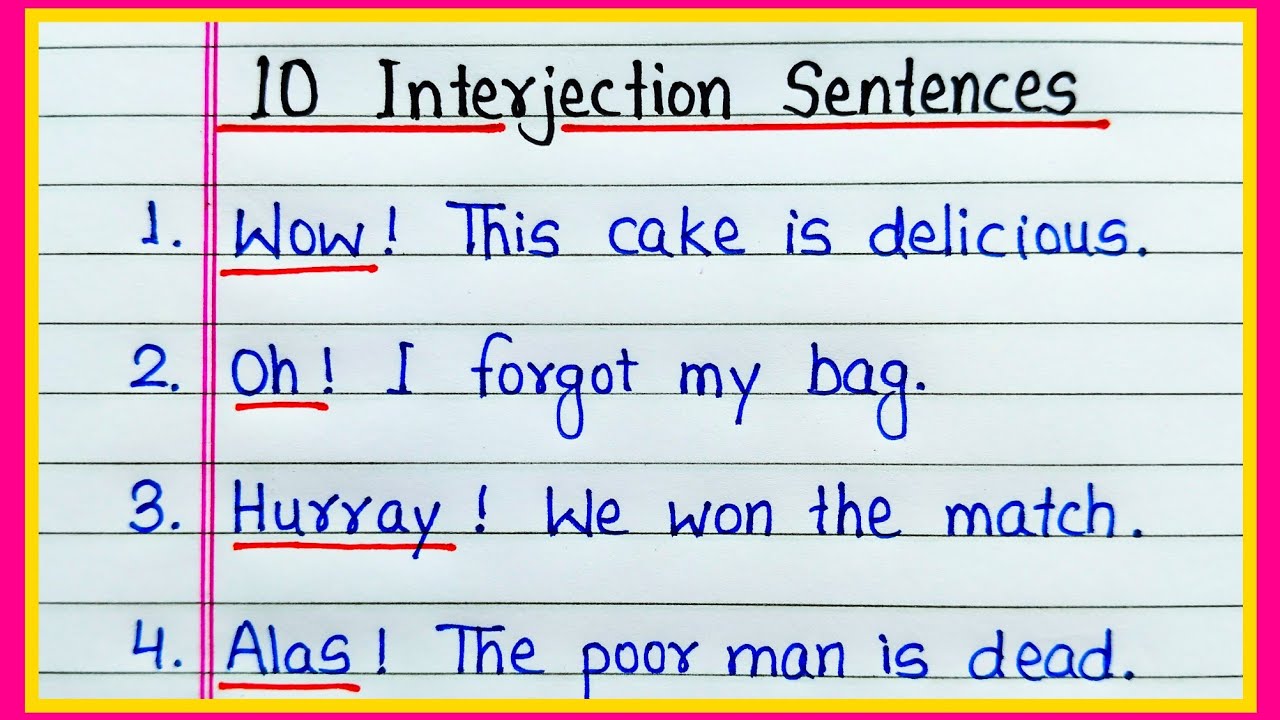 10 Interjection Sentences
1. Wow! This cake is delicious.
2. Oh! I forgot my bag.
3. Hurray! We won the match.
4. Alas! The poor man is dead.